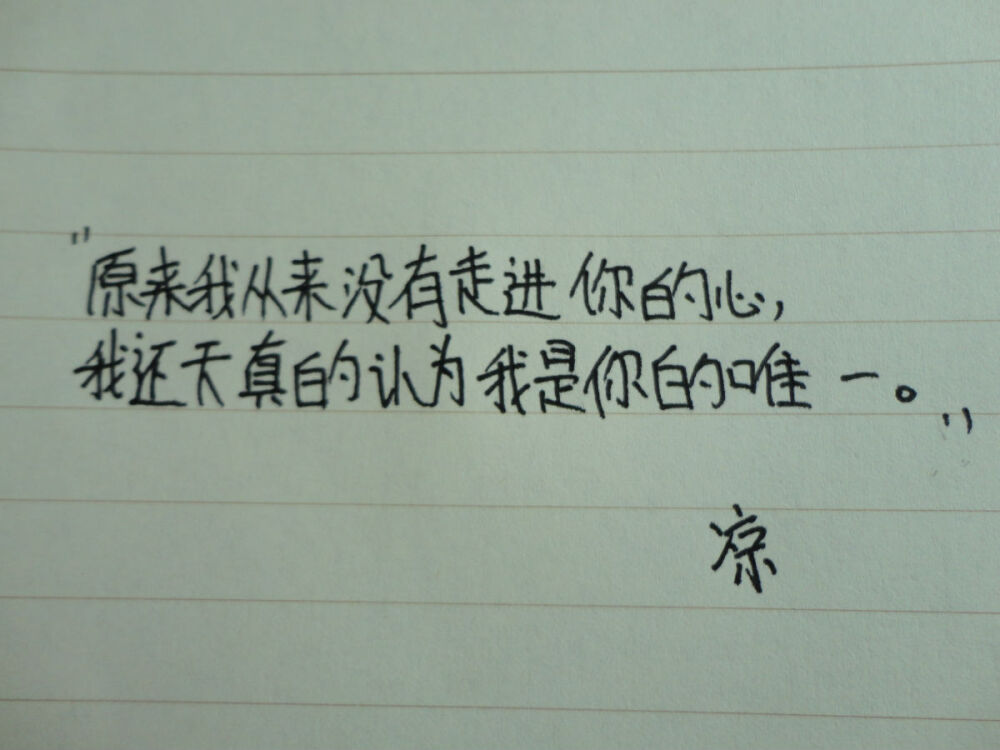 "原来我从来没有走进你的心，
我还天真的认为我是你的唯一。"
凉